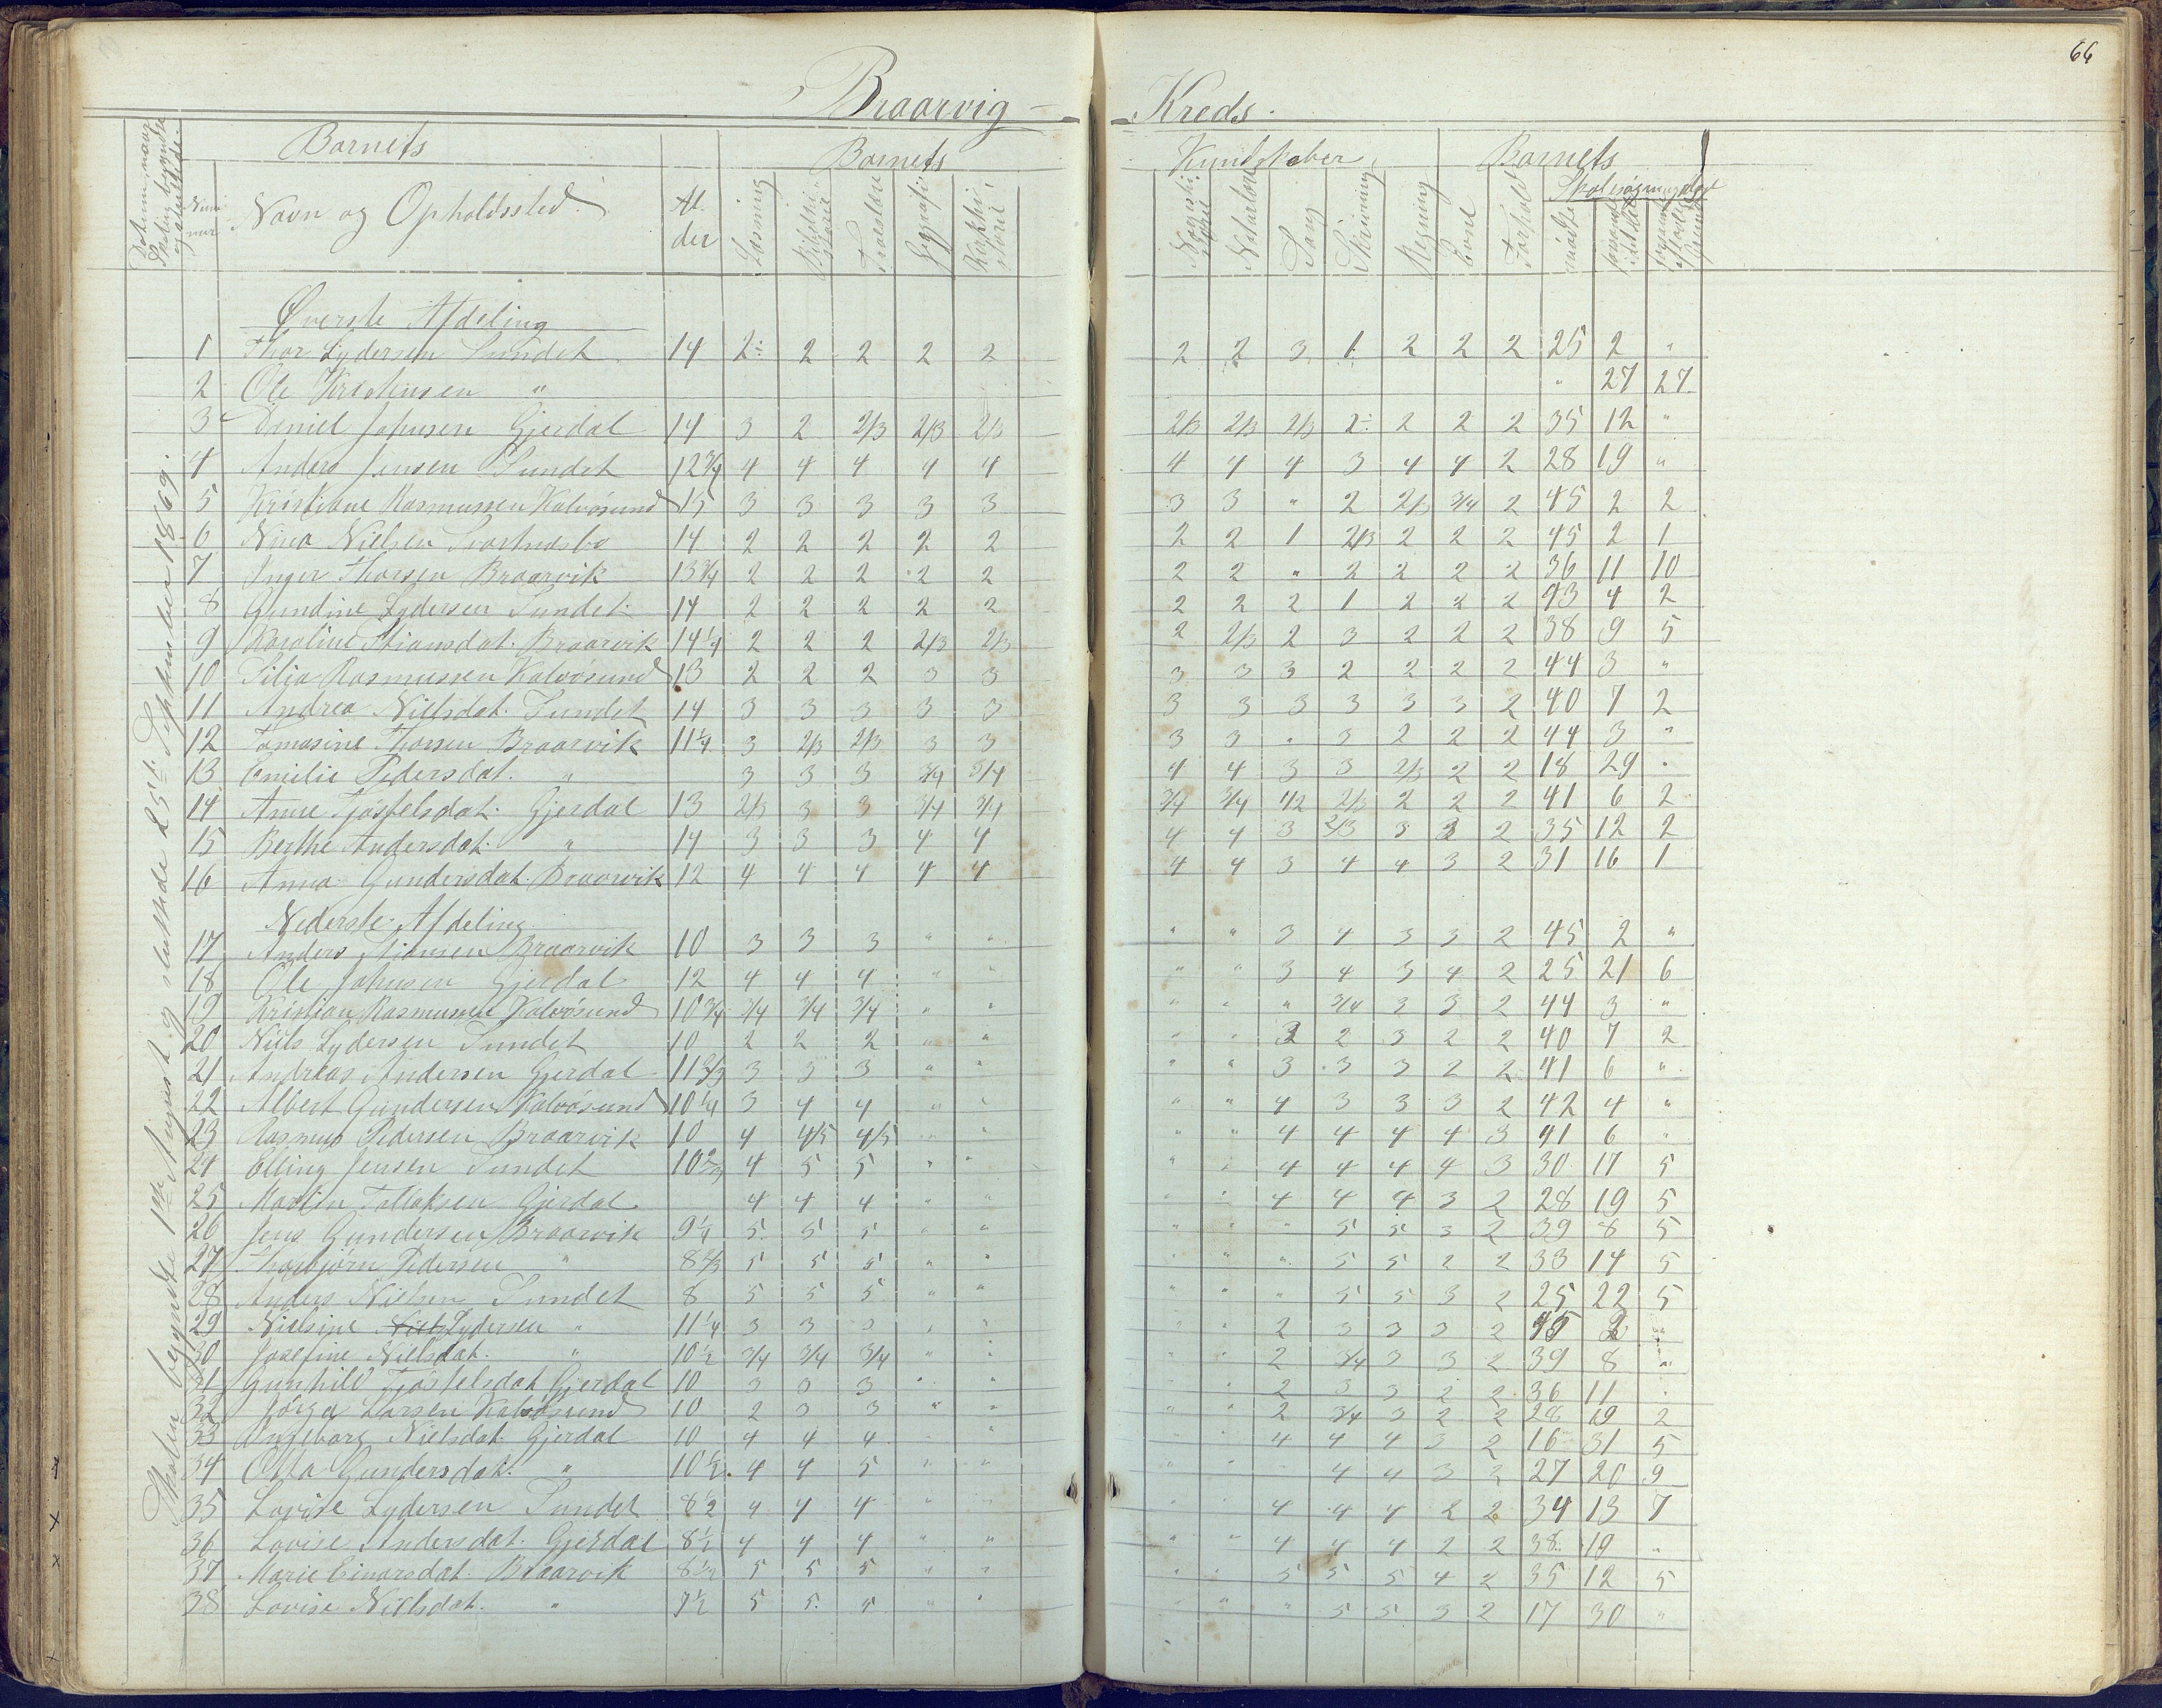 66
Braarvig Kreds.
Barnets
Barnets Kundskaber
Barnets
Skolesøgningsdage
Datum, naar Skolen begyndte og sluttede.
Num mer
Navn og Opholdssted.
Al der
Læsning
Troeslære
Geografi
Naturlære
Sang
Skrivning
Regning
Evne
Forhold
mødte
Skolen begyndte 1ste August og sluttede 25de September 1869.
Øverste Afdeling
1 Thor Lydersen Sundet 14 2÷ 2 2 2 2 2 2 3 1 2 2 2 25 2 "
2 Ole Kristensen " " 27 27
3 Daniel Johnsen Gjerdal 14 3 2 2/3 2/3 2/3 2/3 2/3 2/3 2÷ 2 2 2 35 12 "
4 Anders Jensen Sundet 12 3/4 4 4 4 4 4 4 4 4 3 4 4 2 28 19 "
5 Kristiane Rasmussen Kalvøsund 15 3 3 3 3 3 3 3 " 2 2/3 3/4 2 45 2 2
6 Nina Nielsen Svartnasbo 14 2 2 2 2 2 2 2 1 2/3 2 2 2 45 2 1
7 Inger Thorsen Braarvik 13 3/4 2 2 2 2 2 2 2 " 2 2 2 2 36 11 10
8 Gundine Lydersen Sundet 14 2 2 2 2 2 2 2 2 1 2 2 2 43 4 2
9 Karoline Stiansdat. Braarvik 14 1/4 2 2 2 2/3 2/3 2 2/3 2 3 2 2 2 38 9 5
10 Silja Rasmussen Kalvøsund 13 2 2 2 3 3 3 3 3 2 2 2 2 44 3 "
11 Andrea Nielsdat. Sundet 14 3 3 3 3 3 3 3 3 3 3 3 2 40 7 2
12 Tomasine Thorsen Braarvik 11 1/4 3 2/3 2/3 3 3 3 3 " 3 2 2 2 44 3 "
13 Emilie Pedersdat. " 3 3 3 3/4 3/4 4 4 3 3 2/3 2 2 18 29 "
14 Anne Tjøstelsdat. Gjerdal 13 2/3 3 3 3/4 3/4 3/4 3/4 1/2 2/3 2 2 2 41 6 2
15 Berthe Andersdat. " 14 3 3 3 4 4 4 4 3 2/3 3 3 2 35 12 2
16 Anna Gundersdat. Braarvik 12 4 4 4 4 4 4 4 3 4 4 3 2 31 16 1
Nederste Afdeling
17 Anders Stiansen Braarvik 10 3 3 3 " " " " 3 4 3 3 2 45 2 "
18 Ole Johnsen Gjerdal 12 4 4 4 " " " " 3 4 3 4 2 25 21 6
19 Kristian Rasmussen Kalvøsund 10 3/4 3/4 3/4 3/4 " " " " " 3/4 3 3 2 44 3 "
20 Niels Lydersen Sundet 10 2 2 2 " " " " 3 2 3 2 2 40 7 2
21 Andreas Andersen Gjerdal 11 2/3 3 3 3 " " " " 3 3 3 2 2 41 6 "
22 Albert Gundersen Kalvøsund 10 1/4 3 4 4 " " " " 4 3 3 3 2 42 4 "
23 Rasmus Pedersen Braarvik 10 4 4/5 4/5 " " " " 4 4 4 4 3 41 6 "
24 Elling Jensen Sundet 10 2/3 4 5 5 " " " " 4 4 4 4 3 30 17 5
25 Martin Tallaksen Gjerdal 4 4 4 " " " " 4 4 4 3 2 28 19 5
26 Jens Gundersen Braarvik 9 1/4 5 5 5 " " " " " 5 5 3 2 39 8 5
27 Thorbjørn Pedersen " 8 2/3 5 5 5 " " " " " 5 5 2 2 33 14 5
28 Anders Nielsen Sundet 8 5 5 5 " " " " " 5 5 3 2 25 22 5
29 Nielsine Lydersen " 11 1/4 3 3 3 " " " " 2 3 3 3 2 45 2 "
30 Josefine Nielsdat. " 10 1/2 3/4 3/4 3/4 " " " " 2 3/4 3 3 2 39 8 "
31 Gunhild Tjøstelsdat. Gjerdal 10 3 3 3 " " " " 2 3 3 2 2 36 11 "
32 Larsen Kalvøsund 10 2 3 3 " " " " 2 3/4 3 2 2 28 19 2
33 Ingeborg Nielsdat. Gjerdal 10 4 4 4 " " " " 4 4 4 3 2 16 31 5
34 Gundersdat. " 10 1/2 4 4 5 " " " " " 4 4 3 2 27 20 9
35 Lovise Lydersen Sundet 8 1/2 4 4 4 " " " " 4 4 4 2 2 34 13 7
36 Lovise Andersdat. Gjerdal 8 1/2 4 4 4 " " " " 4 4 4 2 2 38 19 "
37 Marie Einarsdat. Braarvik 8 1/2 5 5 5 " " " " 5 5 5 4 2 35 12 5
38 Lovise Nielsdat. " 7 1/2 5 5 5 " " " " " 5 5 3 2 17 30 "